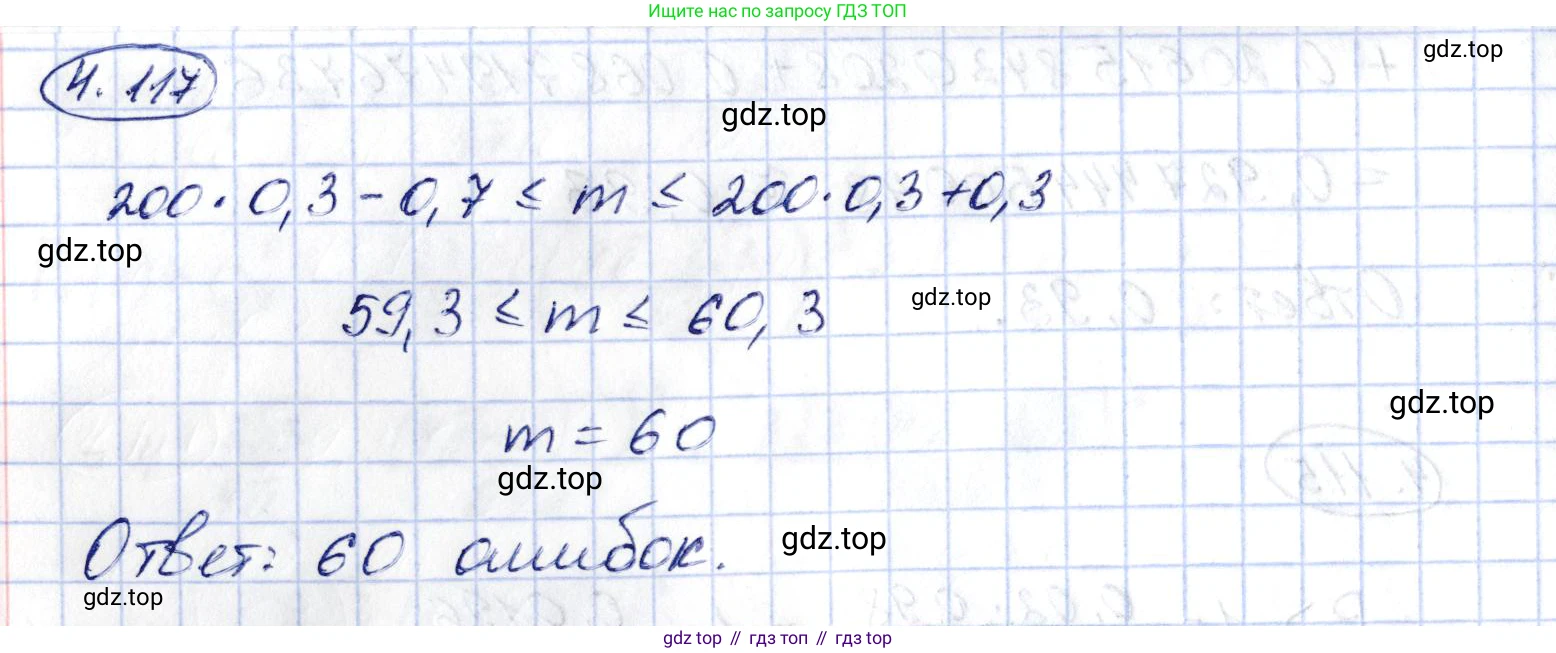 Ищите нас по запросу ГДЗ ТОП
gdz.top
4.117
gdz.top
200·0,3-0,7 ≤ m ≤ 200·0,3+0,3
gdz.top
59,3 ≤ m ≤ 60,3
gdz.top
m = 60
gdz.top
gdz.top
Ответ: 60 ошибок.
gdz.top
gdz.top
gdz top // гдз топ // гдз top